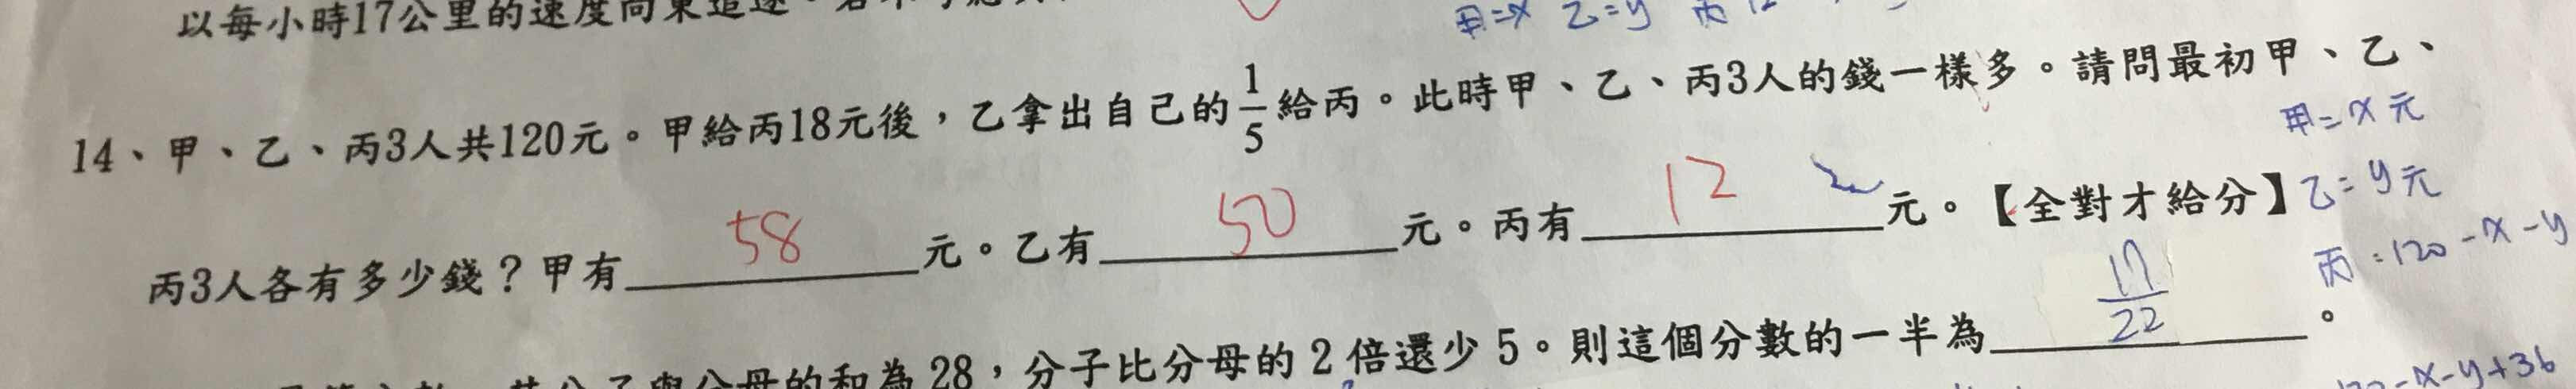 以每小時17公里的速度向東追逐。若
甲=x 乙=y 丙
14、甲、乙、丙3人共120元。甲給丙18元後,乙拿出自己的1/5給丙。此時甲、乙、丙3人的錢一樣多。請問最初甲、乙、
甲=x元
丙3人各有多少錢?甲有58元。乙有50元。丙有12元。【全對才給分】
乙=y元
丙:120-x-y
和為28,分子比分母的2倍還少5。則這個分數的一半為17/22。
-x-y+36